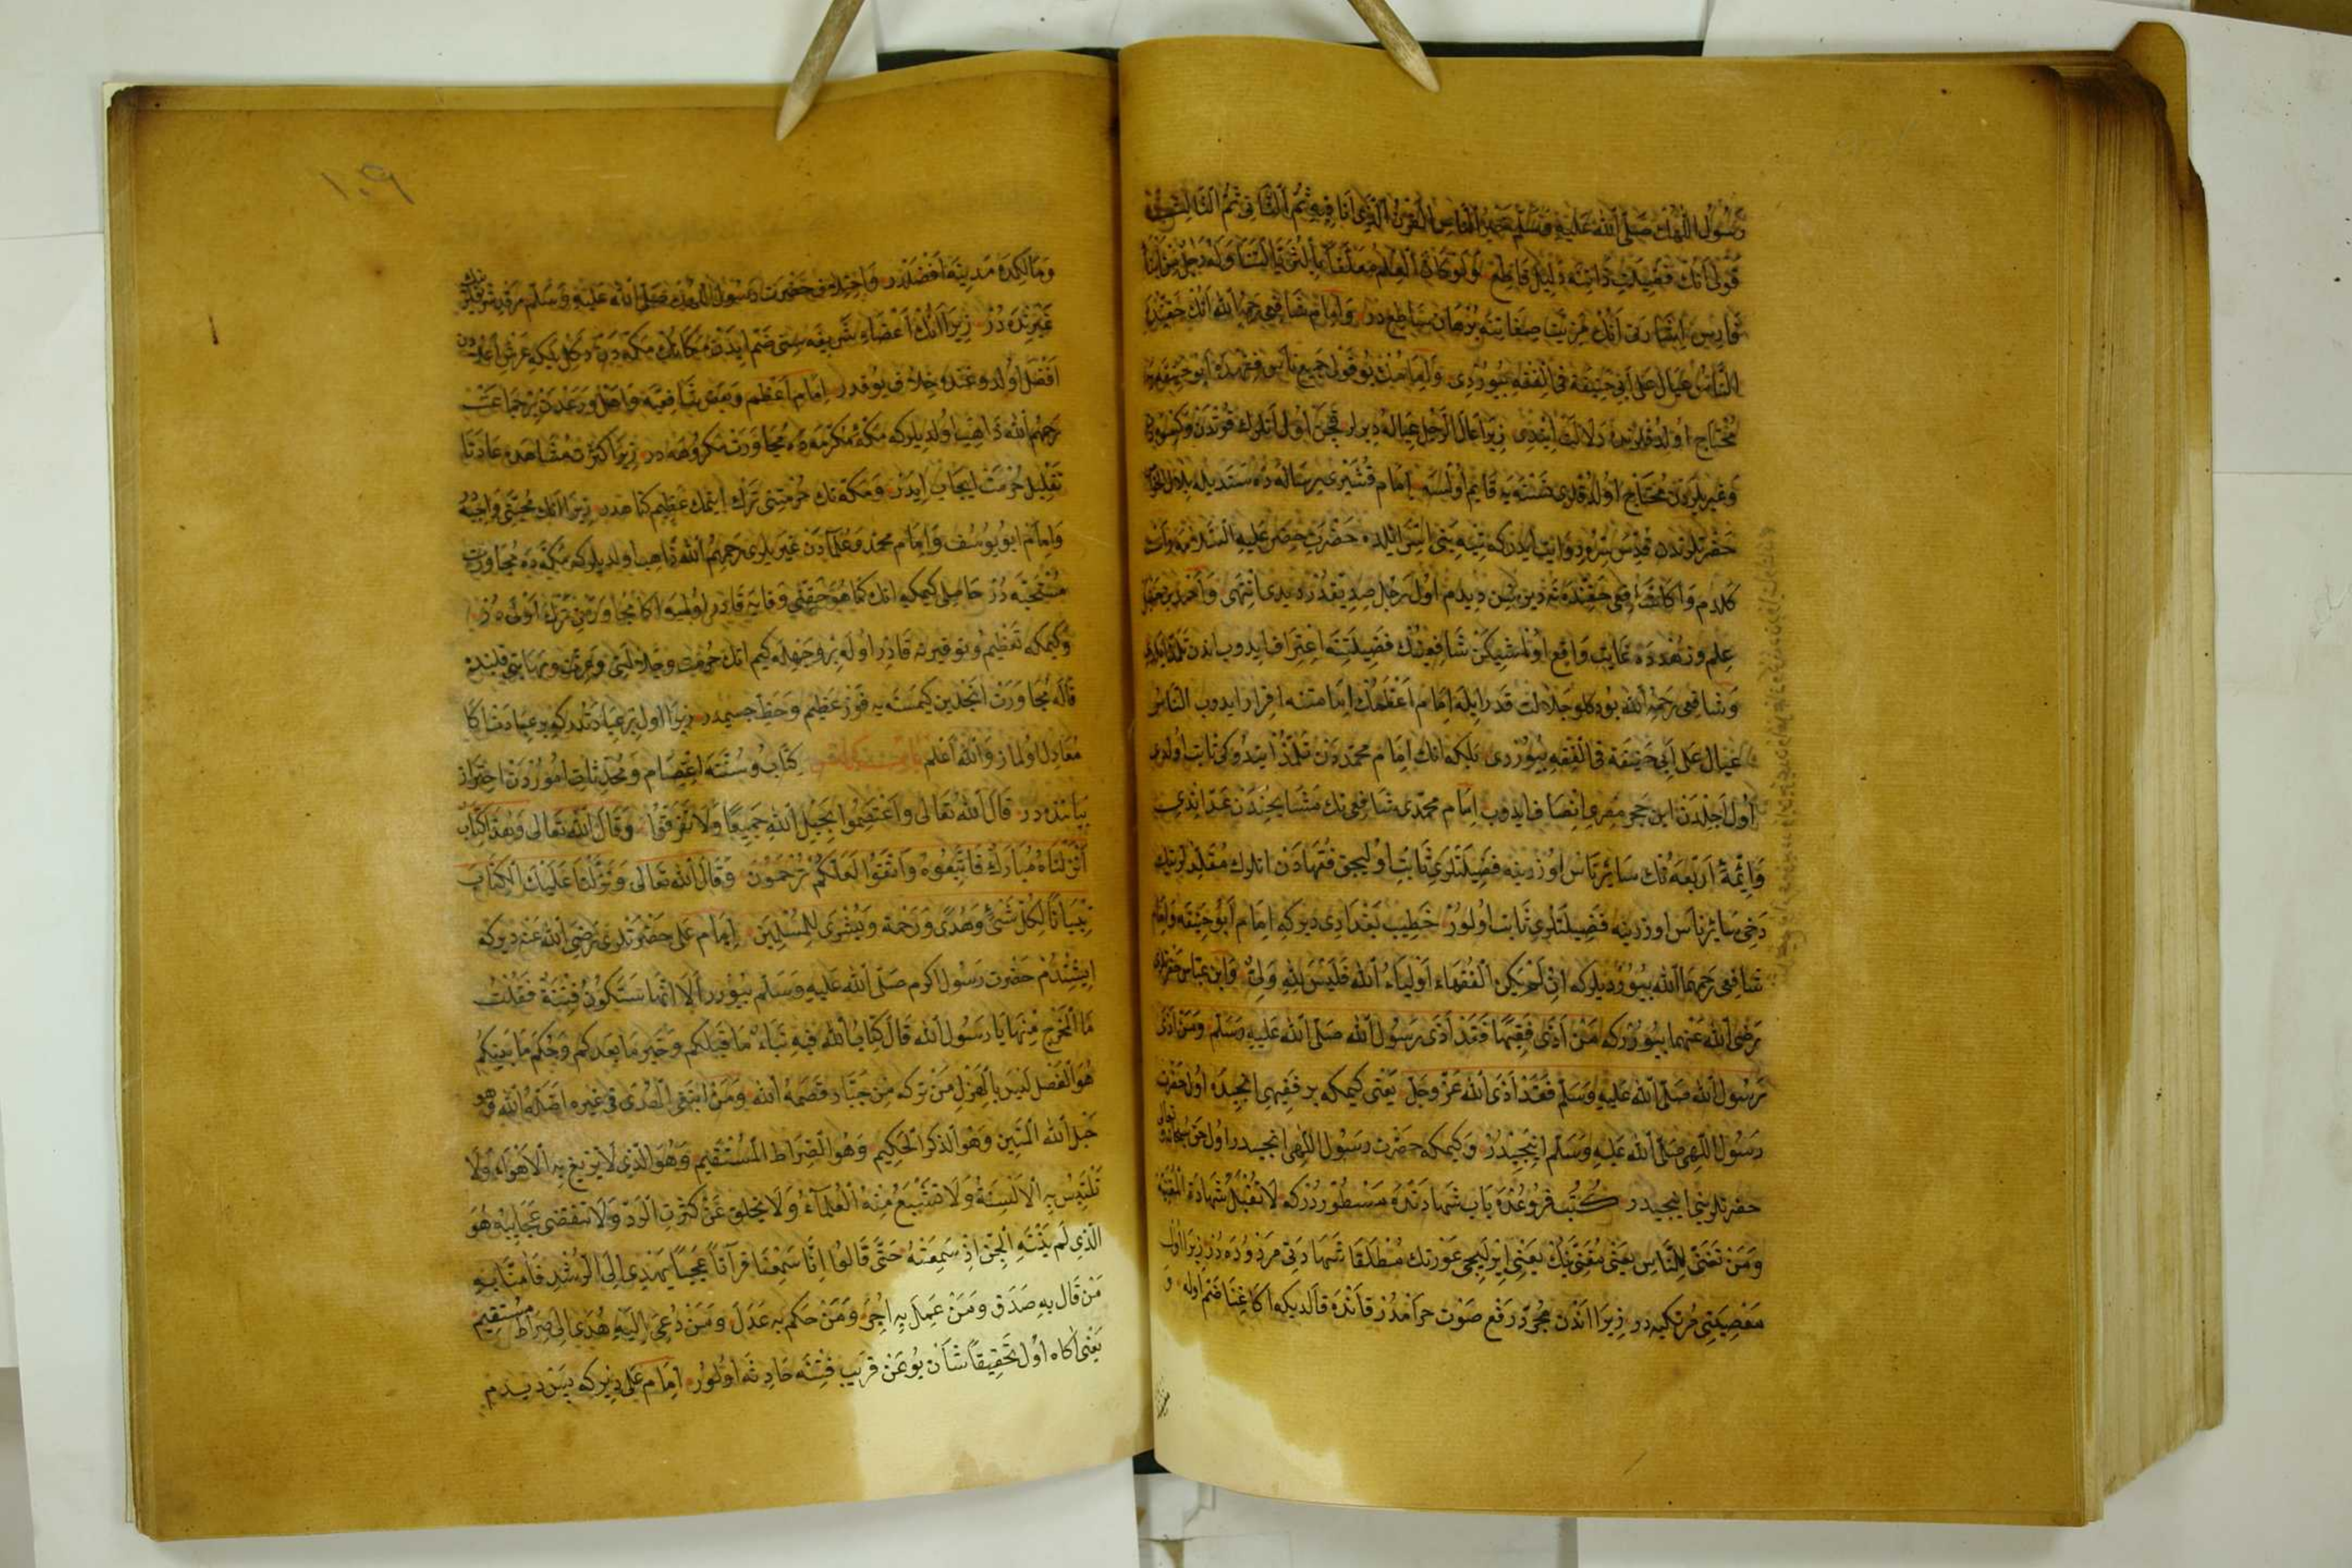 رَسُولُ اللّٰهُڭ صَلَّى اللّٰهُ عَلَيْهِ وَسَلَّمَ خَيْرُ النَّاسِ الْقَرْنُ الَّذِى اَنَا فِيهِ ثُمَّ الثَّانِى ثُمَّ الثَّالِثُ
قَوْلِى اَنُڭ فَضِيلَتِ ذَاتِنَه دَلِيلِ قَاطِع لَوْ كَانَ الْعِلْمُ مُعَلَّقًا بِالثُّرَيَّا لَتَنَاوَلَهُ رَجُلٌ مِنْ اَبْنَاءِ
فَارِس اَنُڭ مَزِيَّتِ صِفَاتِنَه بُرْهَانِ سَاطِع دُر وَاِمَام شَافِعِى رَحِمَهُ اللّٰه اَنُڭ حَقِّنْدَه
النَّاسُ عِيَالٌ عَلَى اَبِى حَنِيفَةَ فِى الْفِقْهِ بُيُوردِى
مُحْتَاج اولدقلرنه دَلَالَتْ اَيْتدِى زِيرَا عَالَ الرَّجُلُ عِيَالَهُ دِيرلر
وَغَيْرِيلَردَن مُحْتَاج اِمَام قُشَيْرِى بِر رِسَالَه ده سَنَدِيلَه
حَضْرَتلرندن قُدِّسَ سِرُّه رِوَايَت ايدر كه تِيهِ بَنِى اِسْرَائِيلده حَضْرَتِ خِضِر عَلَيْهِ السَّلَامه
كلدم وَاكَا شَافِعِى حَقِّنْدَه نه ديرسن ديدم اول رَجُلِ صِدِّيقدُر ديدى اِنْتَهَى وَاَحْمَد بن حَنْبَل
عِلم وزُهدده غَايَت وَاقِع اولمشيكن شَافِعِينُڭ فَضِيلَتِنَه اِعْتِرَاف ايدوب
وَشَافِعِى رَحِمَهُ اللّٰه بُو دكلو جَلَالَتِ قَدر ايله اِمَام اَعْظَمُڭ اِمَامَتِنَه اِقْرَار ايدوب النَّاسُ
عِيَالٌ عَلَى اَبِى حَنِيفَةَ فِى الْفِقْهِ بُيُوردِى بلكه انك اِمَام مُحَمَّددَن تَلَمُّذ ايتدُوكى ثَابِت اولدى
اول اَجْلدَن ابن حَجَر مصرى اِنْصَاف ايدوب اِمَام مُحَمَّدى شَافِعِينك مَشَايِخِندَن عَدّ ايتدى
وَائِمَّهٔ اَرْبَعَه نُڭ سَائِر نَاس اُوزرينه فَضِيلَتلَرى ثَابِت اوليجق فُقَهَادَن انلرك مُقَلِّدلرينك
دخى سَائِر نَاس اوزرينه فَضِيلَتلَرى ثَابِت اولور خَطِيب بَغْدَادى ديركه اِمَام اَبُو حَنِيفَه وَاِمَام
شَافِعِى رَحِمَهُمَا اللّٰه بُيُوردِيلركه اِنْ لَمْ يَكُنِ الْفُقَهَاءُ اَوْلِيَاءَ اللّٰهِ فَلَيْسَ لِلّٰهِ وَلِىٌّ وَابن عَبَّاس حَضرتلرى
رَضِىَ اللّٰه عَنْهُمَا بُيُوررکه مَنْ اَذَى فَقِيهًا فَقَدْ اَذَى رَسُولَ اللّٰه صَلَّى اللّٰه عَلَيْهِ وَسَلَّمَ وَمَنْ اَذَى
رَسُولَ اللّٰه صَلَّى اللّٰه عَلَيْهِ وَسَلَّمَ فَقَدْ اَذَى اللّٰهَ عَزَّ وَجَلَّ يَعْنِى كيمكه بر فَقِيهى انجيده اول حَضْرَتِ
رَسُولُ اللّٰهى صَلَّى اللّٰه عَلَيْهِ وَسَلَّمَ اينجيدر وَكيمكه حَضْرَتِ رَسُولُ اللّٰهى انجيدر اول حَقّ سُبْحَانَه وَتَعَالَى
حضرتلرينى اينجيدر كُتُبِ فُرُوعُده بَابِ شَهَادَتْدَه مَسْطُوردُركه لَا تُقْبَلُ شَهَادَةُ الْمُغَنِّيَة
وَمَنْ تَغَنَّى لِلنَّاسِ يَعْنِى مُغَنِّيَنُڭ يَعْنِى ايرلييجى عَوْرتك مُطْلَقَا شَهَادَتى مَردُوده دُر زِيرَا اول
مَعْصِيَتِى مُرْتَكِبه در زِيرَا اندن مُجَرَّد رَفعِ صَوْت حَرَامدُر قَانده قالديكه اكَا غِنَا ضَم اوله
١٠٩
وَمَا لَكِدَه مَدِينَه اَفْضَلدُر وَاِخْتِلَاف حَضْرَتِ رَسُولُ اللّٰهُڭ صَلَّى اللّٰه عَلَيْهِ وَسَلَّم مَرْقَدِ شَرِيفلَرينك
غَيْرِنده دُر زِيرَا انُڭ اَعْضَاءِ شَرِيفَه سِنى ضَم ايدن مَكَانُڭ مَكَّه دَن دكل بلكه عَرْشِ اَعْلَادن
اَفضَل اولدوغنده خِلَاف يوقدر اِمَام اَعْظَم وَبَعضِ شَافِعِيَّه وَاَهلِ وَرَعْدَن بِر جَمَاعَت
رَحِمَهُمُ اللّٰه ذَاهِب اولديلركه مَكَّهٔ مُكَرَّمَه ده مُجَاوَرَت مَكرُوهَه در زِيرَا كَثْرَتِ مُشَاهَده عَادَتَا
تَقْلِيلِ حُرْمَت اِيجَاب ايدر وَمَكَّه نك حُرْمَتِنى تَرك ايتمك عَظِيم كناهدر زِيرَا انك مَحَبَّتى وَاجِبه در
وَاِمَام اَبُو يُوسُف وَاِمَام مُحَمَّد وَعُلَمَادَن غَيريلرى رَحِمَهُمُ اللّٰه ذَاهِب اولديلركه مَكَّه ده مُجَاوَرَت
مُسْتَحَبَّه دُر حَاصِلى كيمكه انك كَمَا هُوَ حَقِّى وقَايَه قَادِر اولمسه اكا مُجَاوَرَتى تَرك اَوْلَى دُر
وَكيمكه تَعْظِيم وتَوقِيرنه قَادِر اوله بِر وَجْهله كيم انك حُرْمَت وجَلَالَتى وَعِزَّت وَمَهَابَتى قلبنده
قاله مُجَاوَرَت انجلين كيمسه يه فَوْزِ عَظِيم وَحَظِّ جسيمدر زِيرَا اول بر عِبَادتدر كه بر عِبَادت اكَا
مُعَادِل اولماز وَاللّٰه اَعلَم كِتَاب وسُنَّتَه اِعْتِصَام ومُحْدَثَات اُمُوردَن اِحْتِرَاز
بَيَاننده در قَالَ اللّٰه تَعَالَى وَاعْتَصِمُوا بِحَبْلِ اللّٰهِ جَمِيعًا وَلَا تَفَرَّقُوا وَقَالَ اللّٰه تَعَالَى وَهٰذَا كِتَابٌ
اَنْزَلْنَاهُ مُبَارَكٌ فَاتَّبِعُوهُ وَاتَّقُوا لَعَلَّكُمْ تُرْحَمُونَ وَقَالَ اللّٰه تَعَالَى وَنَزَّلْنَا عَلَيْكَ الْكِتَابَ
تِبْيَانًا لِكُلِّ شَىْءٍ وَهُدًى وَرَحْمَةً وَبُشْرَى لِلْمُسْلِمِينَ اِمَام عَلى حَضْرَتْلَرى رَضِىَ اللّٰه عَنْه ديركه
اِيشِتدُم حَضْرَتِ رَسُولِ اكرم صَلَّى اللّٰه عَلَيْهِ وَسَلَّم بُيُورر اَلَا اِنَّهَا سَتَكُونُ فِتْنَةٌ فَقُلْتُ
مَا الْمَخْرَجُ مِنْهَا يَا رَسُولَ اللّٰه قَالَ كِتَابُ اللّٰه فِيهِ نَبَاءُ مَا قَبْلَكُمْ وَخَبَرُ مَا بَعْدَكُمْ وَحُكْمُ مَا بَيْنَكُمْ
هُوَ الْفَصْلُ لَيْسَ بِالْهَزْلِ مَنْ تَرَكَهُ مِنْ جَبَّارٍ قَصَمَهُ اللّٰه وَمَنْ ابْتَغَى الْهُدَى فِى غَيْرِهِ اَضَلَّهُ اللّٰه وَهُوَ
حَبْلُ اللّٰهِ الْمَتِين وَهُوَ الذِّكْرُ الْحَكِيم وَهُوَ الصِّرَاطُ الْمُسْتَقِيم وَهُوَ الَّذِى لَا يَزِيغُ بِهِ الْاَهْوَاءُ وَلَا
تَلْتَبِسُ بِهِ الْاَلْسِنَةُ وَلَا تَشْبَعُ مِنْهُ الْعُلَمَاءُ وَلَا يَخْلَقُ عَنْ كَثْرَةِ الرَّدِّ وَلَا تَنْقَضِى عَجَايِبُهُ هُوَ
الَّذِى لَمْ يَنْتَهِ الْجِنُّ اِذْ سَمِعَتْهُ حَتَّى قَالُوا اِنَّا سَمِعْنَا قُرْآنًا عَجَبًا يَهْدِى اِلَى الرُّشْدِ فَاٰمَنَّا بِهِ
مَنْ قَالَ بِهِ صَدَقَ وَمَنْ عَمِلَ بِهِ اُجِرَ وَمَنْ حَكَمَ بِهِ عَدَلَ وَمَنْ دُعِىَ اِلَيْهِ هُدِىَ اِلَى صِرَاطٍ مُسْتَقِيم
يَعْنِى اكاه اول تَحْقِيقًا شَان بُو عَنْ قَرِيب فِتْنَه حَادِثَه اولور اِمَام عَلى ديركه بَن ديدم